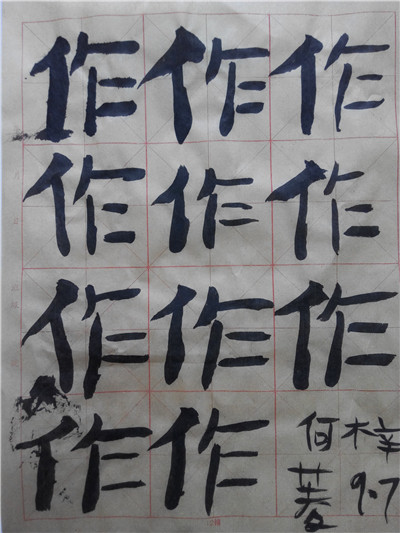 作作作
作作作
作作作
作作
何梓
菱 9.7